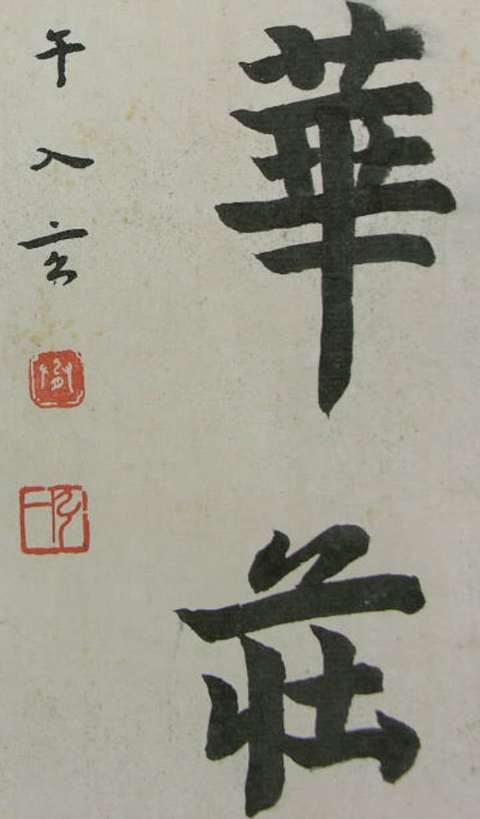 華莊
午入玄